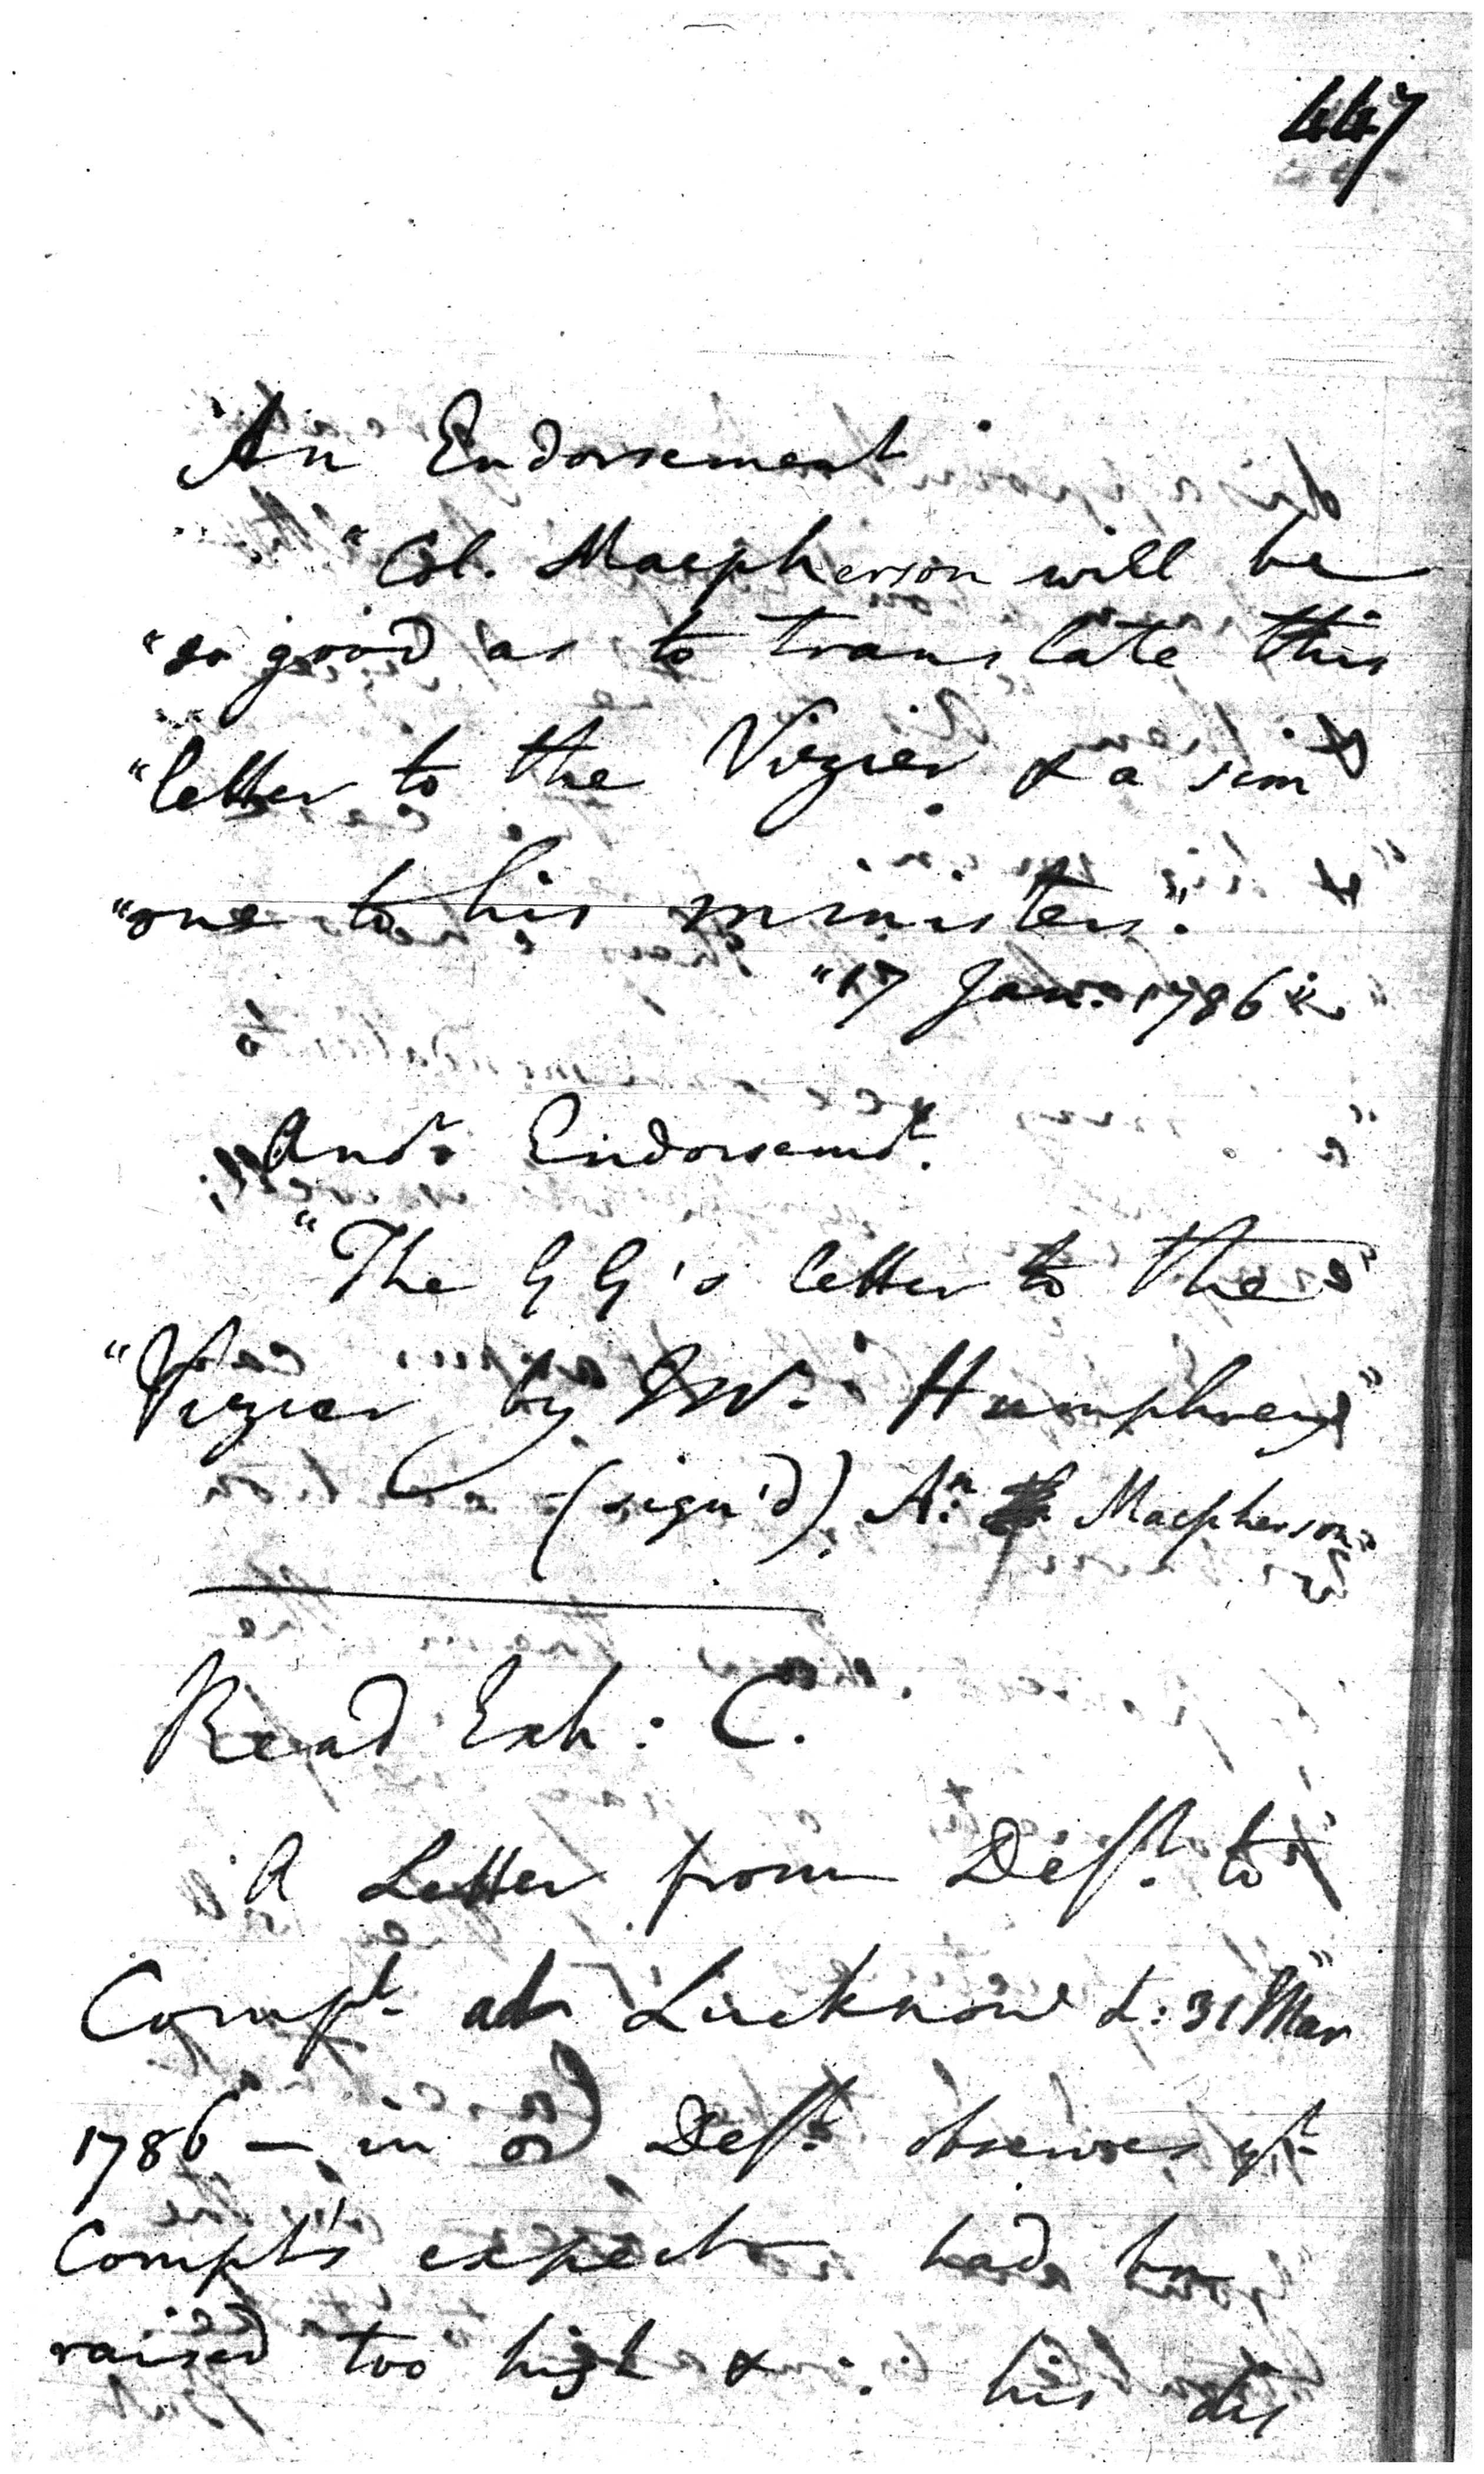 447
An Endorsement
"Col. Macpherson will be
"so good as to translate this
"letter to the Vizier & a sim
"one to his ministers".
"17 Jan. 1786
Andr Endorsemt.
"The GG's letter to the
"Vizier by Mr. Humphreys"
(sign'd) An. Macpherson"
Read Exh: C.
A Letter from Deft. to
Compt. at Lucknow d: 31 Mar
1786 – in Deft. observes yt
Compt's expects had bn
raised too high & his dis